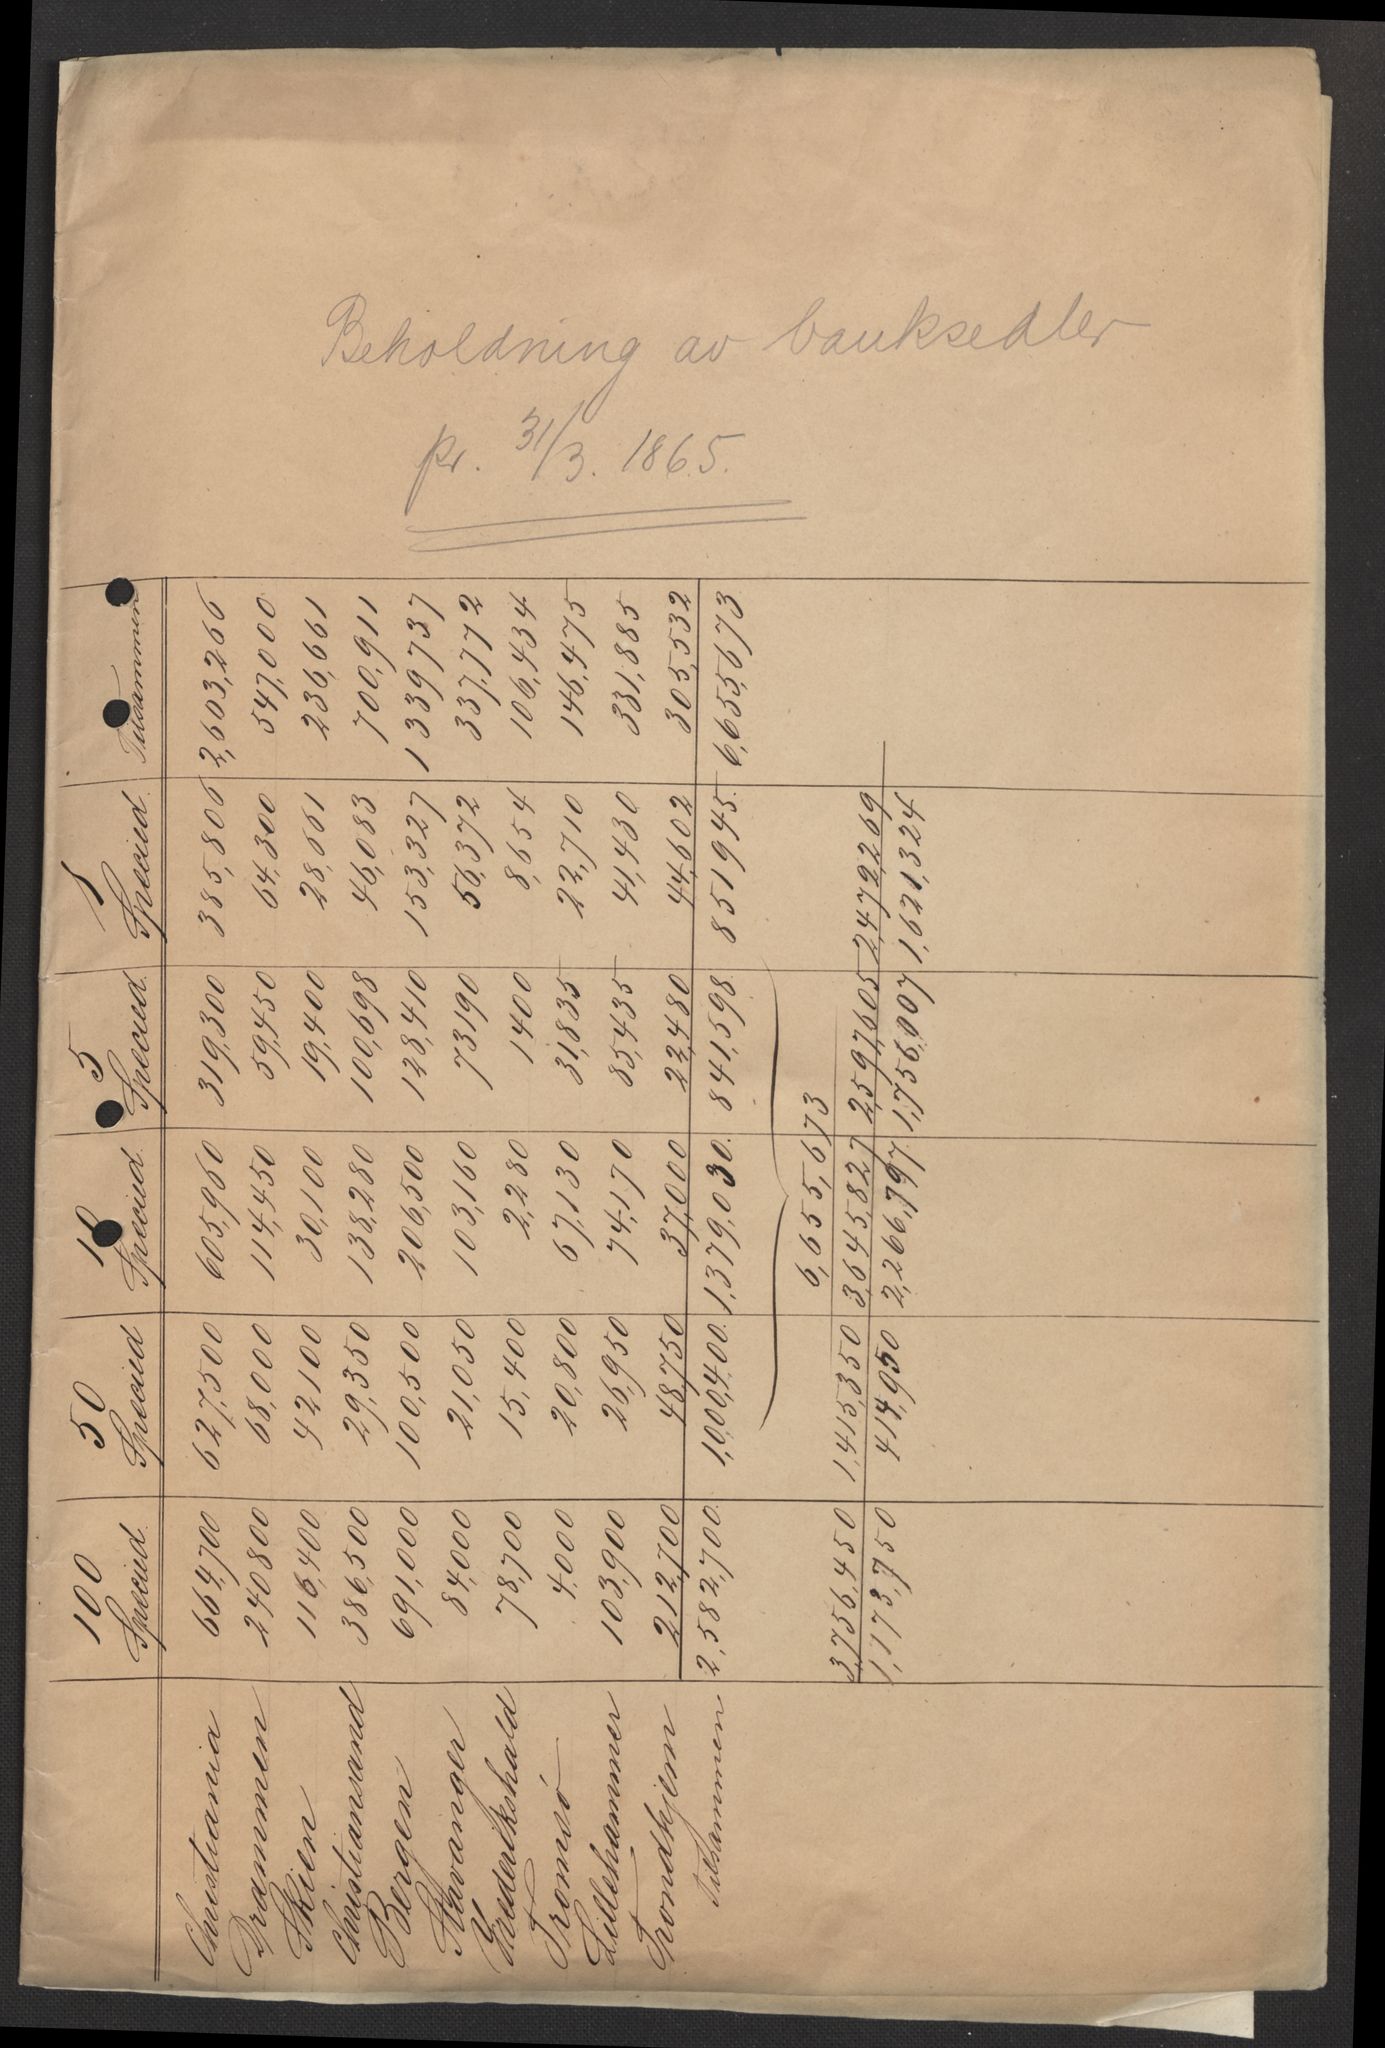 Beholdning av banksedler
pr. 31/3. 1865.
100 50 10 5 1
Specied. Specied Specied. Specied. Specied. Tilsammen
Christiania 664,700 627,500 605,960 319,300 385,806 2,603,266
Drammen 240,800 68,000 114,450 59,450 64,300 547,000
Skien 116,400 42,100 30,100 19,400 28,661 236,661
Christiansand 386,500 29,350 138,280 100,698 46,083 700,911
Bergen 691,000 100,500 206,500 128,410 153,327 1339,737
Stavanger 84,000 21,050 103,160 73190 56,372 337,772
Frederikshald 78,700 15,400 2,280 1400 8,654 106,434
Tromsö 4,000 20,800 67,130 31,835 22,710 146,475
Lillehammer 103,900 26,950 74,170 85,435 41,430 331,885
Trondhjem 212,700 48,750 37,000 22,480 44,602 305,532
Tilsammen 2,582,700. 1,000,400. 1,379,030. 841,598. 851945. 6,655,673
6,655,673
3,756,450 1,415,350 3,645,827 2,597,605 2,472,269
1,173,750 414,950 2,266,797. 1,756,007 1,621,324